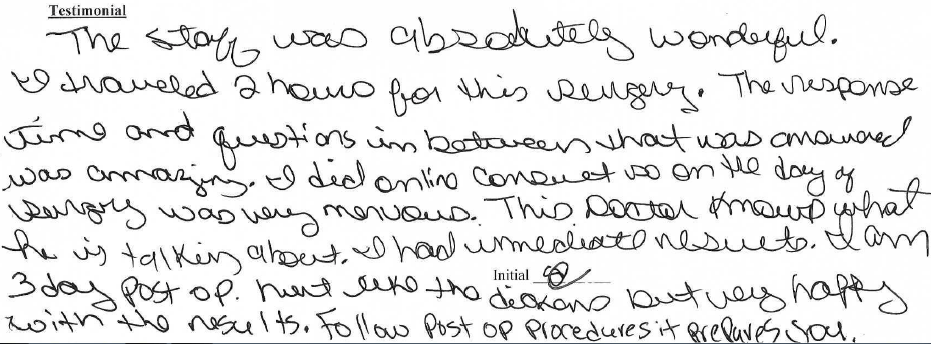 Testimonial
The staff was absolutely wonderful.
I traveled 2 hours for this surgery. The response
time and questions in between that was answered
was amazing. I did online consult so on the day of
surgery was very nervous. This Doctor knows what
he is talking about. I had immediate results. I am
Initial
3 day post op. hurt like the dickens but very happy
with the results. Follow Post op Procedures it prepares you.